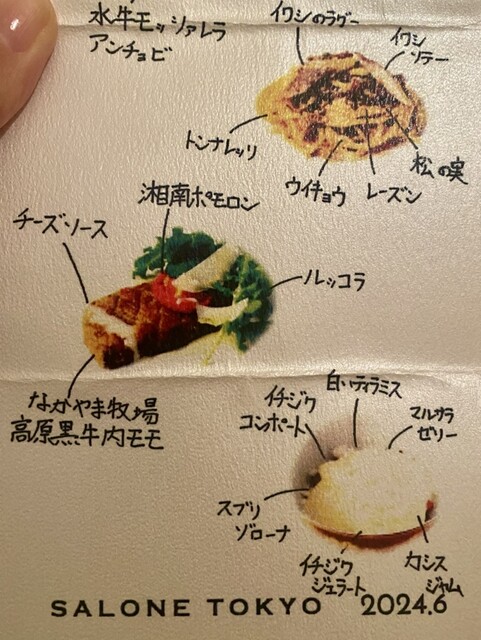 水牛モッツァレラ
アンチョビ
イワシのラグー
イワシ
ソテー
トンナレッリ
ウイキョウ
レーズン
松の実
湘南ポモロン
チーズソース
ルッコラ
なかやま牧場
高原黒牛内モモ
白いティラミス
イチジク
コンポート
マルサラ
ゼリー
スブリ
ゾローナ
イチジク
ジェラート
カシス
ジャム
SALONE TOKYO 2024.6